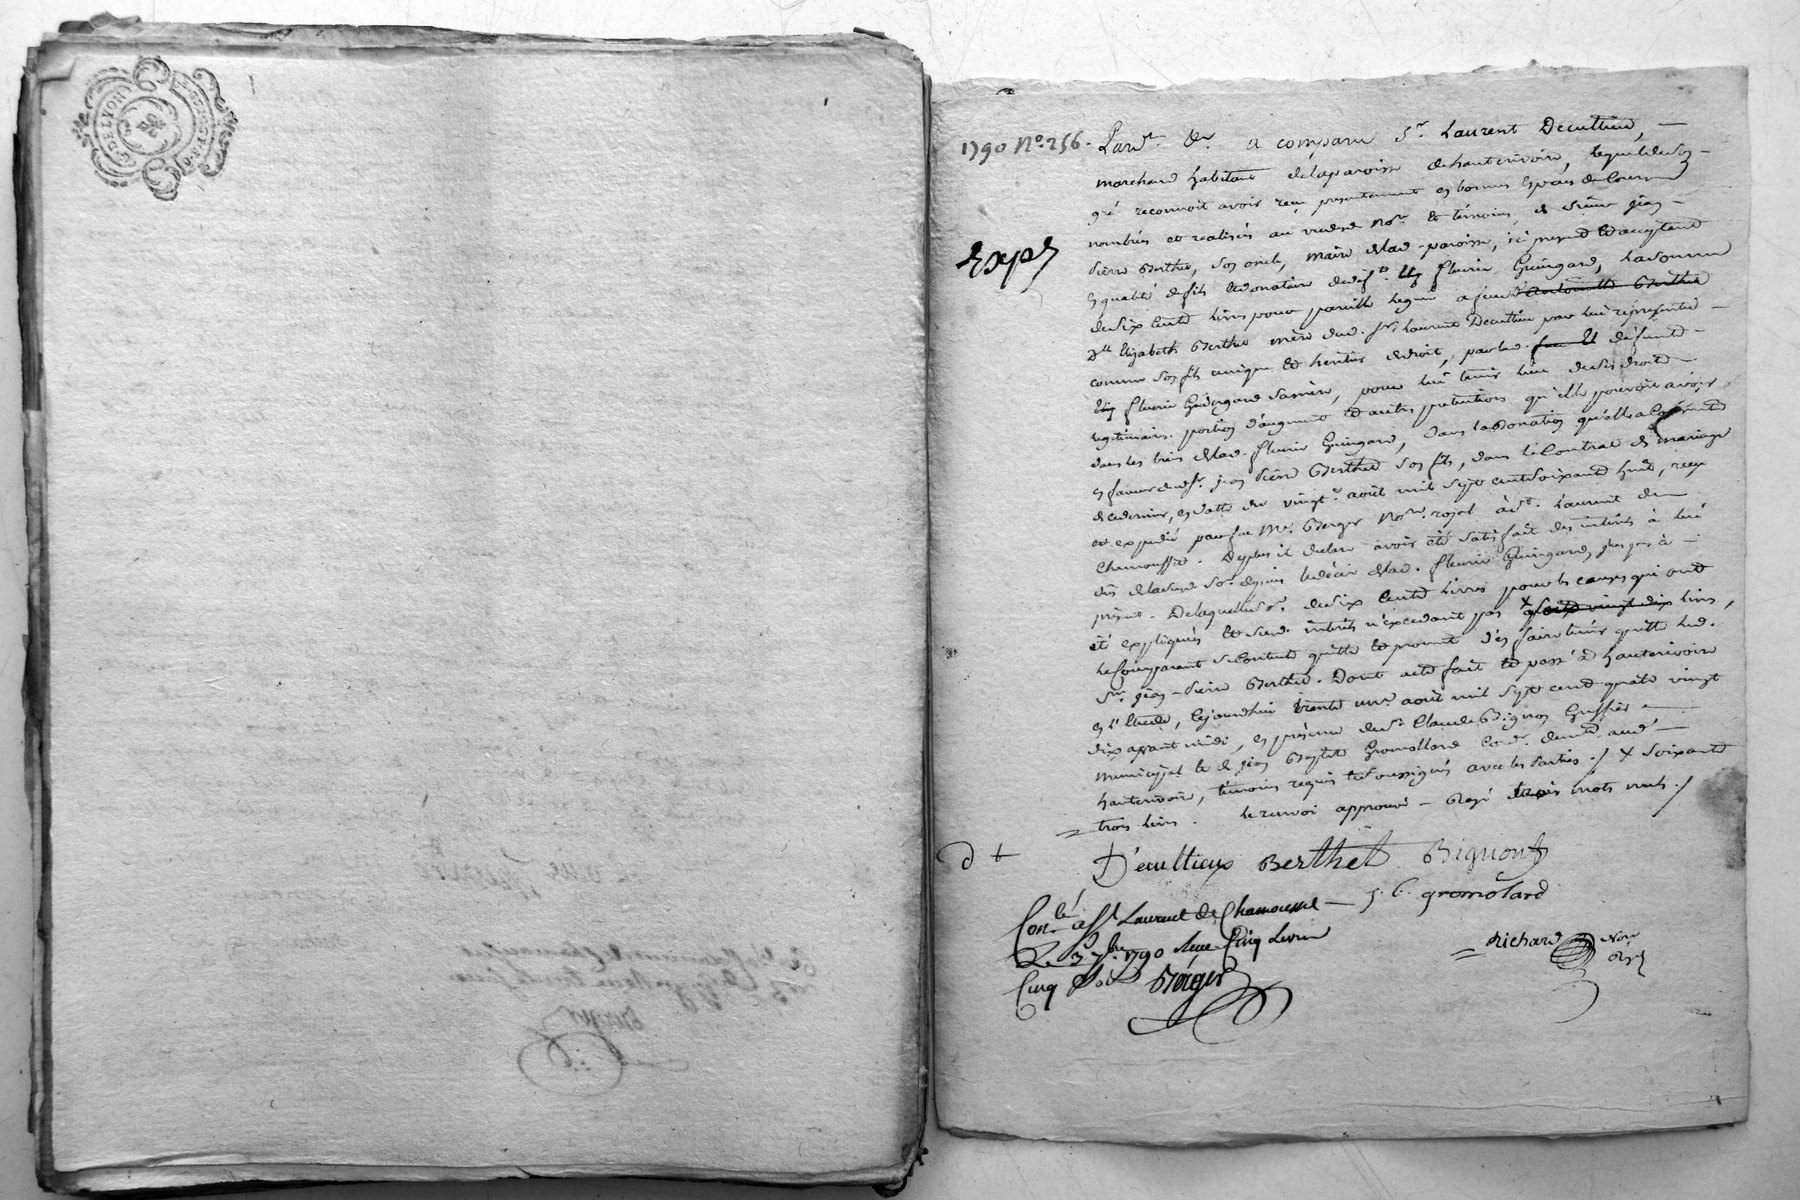 G. DE LYON
1790 N.o 256.
Expé
Pard.t &.a a comparu S.r Laurent Decultieu, —
marchand habitant de la paroisse de hauterivoire, lequel de son
gré reconnoit avoir reçu presentement en bonnes Especes de Cours
nombrés et realisés au vu desd. no.re et témoins, de sieur jean-
pierre Berthet, son oncle, maire de lad. paroisse, ici present et acceptant
en qualité de fils et donataire de fleurie Guingard, la somme
de six Cents livres pour pareille leguée a feue antoinette Berthet
D.lle Elizabeth Berthet mere dud. S.r Laurent Decultieu par lui représentée —
comme son fils unique et heritier de droit, par lad. défunte —
fleurie Guingard sa mère, pour lui tenir lieu de ses droits —
legitimaires, portion d'augment et autres pretentions qu'elle pouvoit avoir
dans les biens de lad. fleurie Guingard, dans la Donation qu'elle a
en faveur dud. S.r jean pierre Berthet son fils, dans le Contrat de mariage
de ce dernier, en datte du vingt août mil sept cent soixante huit, reçu
et expedié par feu M.e Berger no.re royal à S.t Laurent de
Chamousset. De plus il declare avoir été satisfait des interets à lui
dûs de lad. so.e depuis le décès de lad. fleurie Guingard, jusques à —
présent. De laquelle so.e de six Cents livres pour les causes qui ont
été expliquées et desd. interets n'excedant pas × quatre vingt dix livres,
le Comparant se Contente quitte et promet d'en faire tenir quitte led.
S.r jean-pierre Berthet. Dont acte fait et passé à hauterivoire
en l'Etude, cejourdhui trente un août mil sept cent quatre vingt
dix avant midi, en présence de S.r Claude Bignon Greffier —
municipal et de jean Baptiste Gromollard Cord.r demt. aud. —
hauterivoire, témoins requis et soussignés avec les parties ./. × soixante
= trois livres. le renvoi approuvé — Rayé trois mots nuls ./.
D'ecultieux Berthet Bignon
j. b. gromolard
Con.lé à S.t Laurent de Chamousset —
Le 3 7.bre 1790 Reçu Cinq Livres
Cinq Sols Berger
= Richard Nore
Roy.